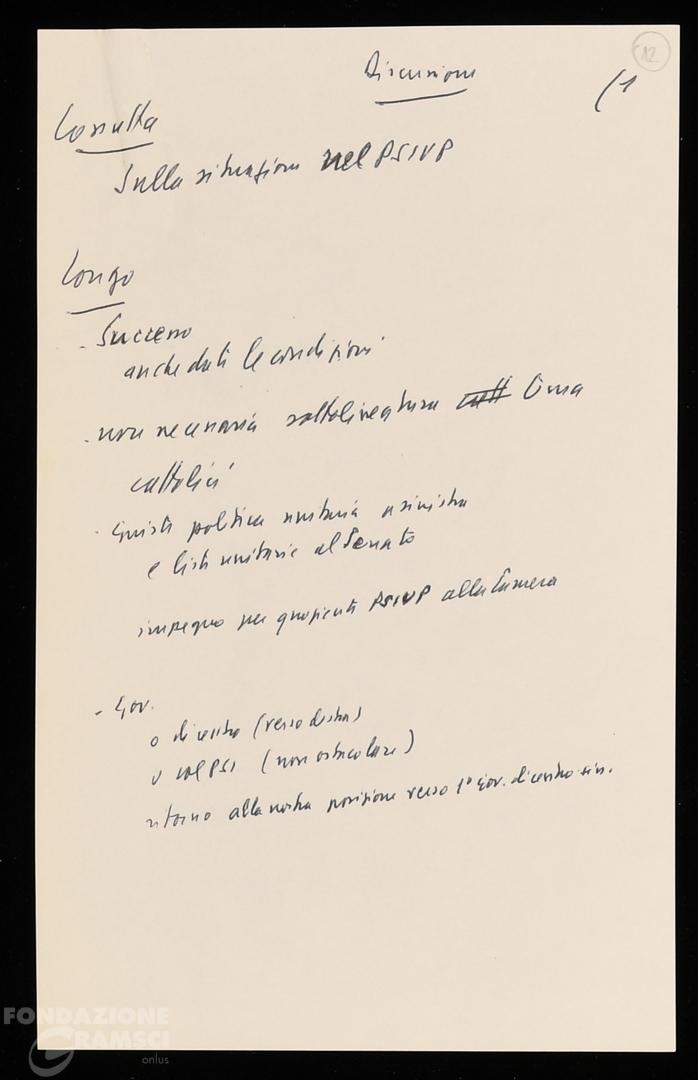 12
Discussione
(1
Cossutta
Sulla situazione nel PSIUP
Longo
- Successo
anche dati le condizioni
- non necessaria sottolineatura linea
cattolici
- giusta politica unitaria a sinistra
e liste unitarie al Senato
impegno per quozienti PSIUP alla Camera
- Gov.
o di centro (verso destra)
o col PSI (non ostacolare)
ritorno alla nostra posizione verso 1° gov. di centro-sin.
FONDAZIONE
GRAMSCI
onlus